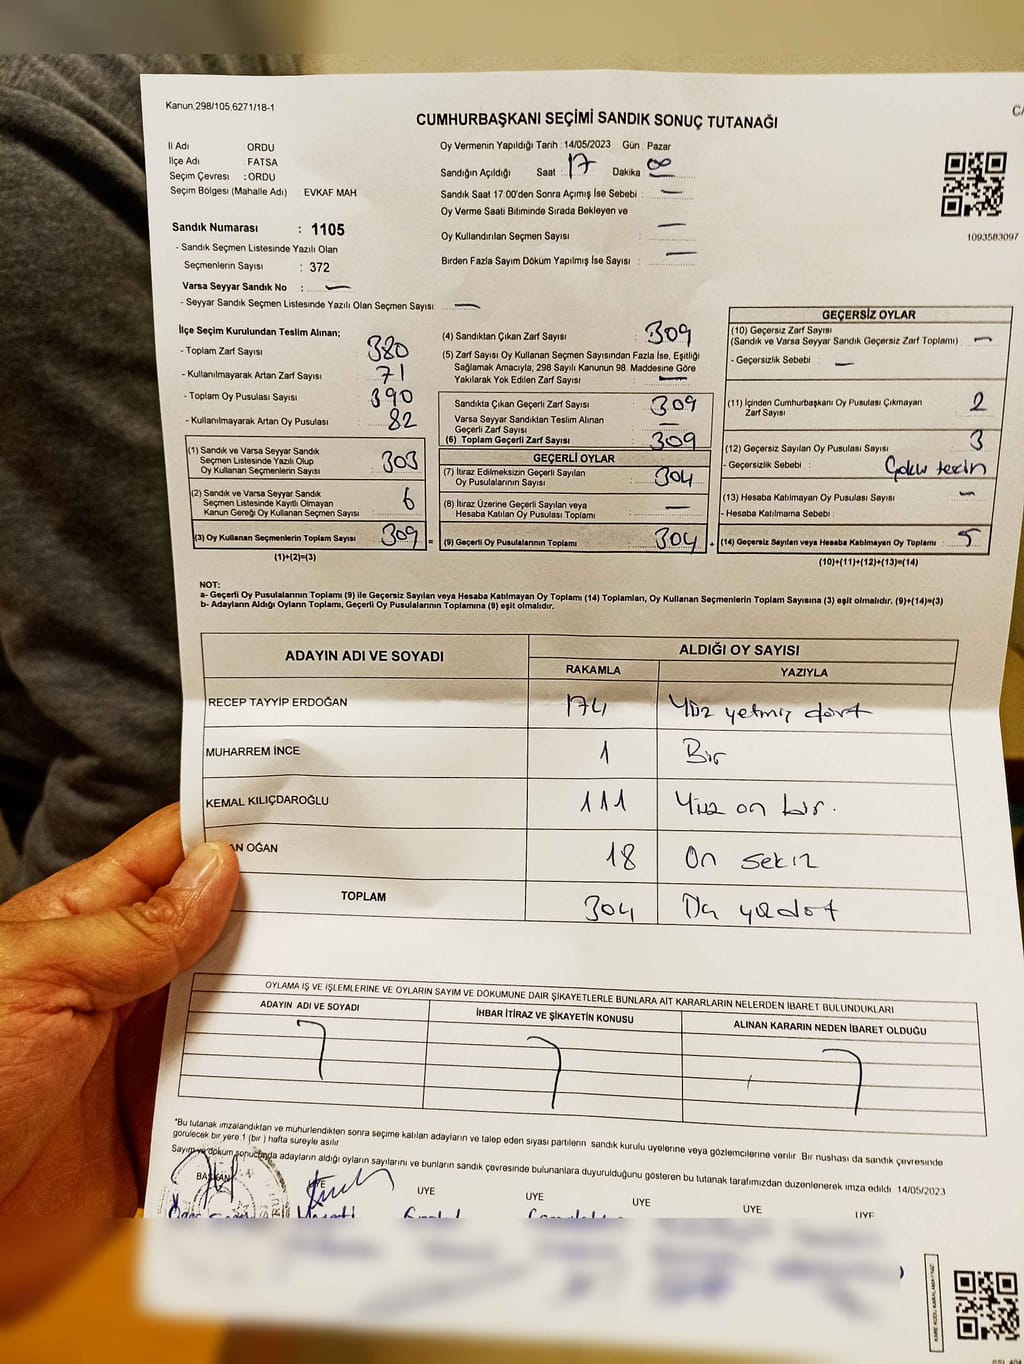 Kanun.298/105.6271/18-1
CUMHURBAŞKANI SEÇİMİ SANDIK SONUÇ TUTANAĞI
İl Adı ORDU
İlçe Adı : FATSA
Seçim Çevresi : ORDU
Seçim Bölgesi (Mahalle Adı) : EVKAF MAH
Sandık Numarası : 1105
- Sandık Seçmen Listesinde Yazılı Olan
Seçmenlerin Sayısı : 372
Varsa Seyyar Sandık No : —
- Seyyar Sandık Seçmen Listesinde Yazılı Olan Seçmen Sayısı: —
Oy Vermenin Yapıldığı Tarih : 14/05/2023 Gün : Pazar
Sandığın Açıldığı Saat : 17 Dakika : 00
Sandık Saat 17:00'den Sonra Açımış İse Sebebi : —
Oy Verme Saati Bitiminde Sırada Bekleyen ve
Oy Kullandırılan Seçmen Sayısı —
Birden Fazla Sayım Döküm Yapılmış İse Sayısı : —
1093583097
İlçe Seçim Kurulundan Teslim Alınan;
- Toplam Zarf Sayısı : 380
- Kullanılmayarak Artan Zarf Sayısı : 71
- Toplam Oy Pusulası Sayısı : 390
- Kullanılmayarak Artan Oy Pusulası : 82
(1) Sandık ve Varsa Seyyar Sandık
Seçmen Listesinde Yazılı Olup
Oy Kullanan Seçmenlerin Sayısı : 303
(2) Sandık ve Varsa Seyyar Sandık
Seçmen Listesinde Kayıtlı Olmayan
Kanun Gereği Oy Kullanan Seçmen Sayısı : 6
(3) Oy Kullanan Seçmenlerin Toplam Sayısı : 309 =
(1)+(2)=(3)
(4) Sandıktan Çıkan Zarf Sayısı : 309
(5) Zarf Sayısı Oy Kullanan Seçmen Sayısından Fazla İse, Eşitliği
Sağlamak Amacıyla, 298 Sayılı Kanunun 98. Maddesine Göre
Yakılarak Yok Edilen Zarf Sayısı : —
Sandıkta Çıkan Geçerli Zarf Sayısı : 309
Varsa Seyyar Sandıktan Teslim Alınan
Geçerli Zarf Sayısı : —
(6) Toplam Geçerli Zarf Sayısı : 309
GEÇERLİ OYLAR
(7) İtiraz Edilmeksizin Geçerli Sayılan
Oy Pusulalarının Sayısı : 304
(8) İtiraz Üzerine Geçerli Sayılan veya
Hesaba Katılan Oy Pusulası Toplamı : —
(9) Geçerli Oy Pusulalarının Toplamı : 304 +
GEÇERSİZ OYLAR
(10) Geçersiz Zarf Sayısı
(Sandık ve Varsa Seyyar Sandık Geçersiz Zarf Toplamı) : —
- Geçersizlik Sebebi : —
(11) İçinden Cumhurbaşkanı Oy Pusulası Çıkmayan
Zarf Sayısı : 2
(12) Geçersiz Sayılan Oy Pusulası Sayısı : 3
- Geçersizlik Sebebi :
(13) Hesaba Katılmayan Oy Pusulası Sayısı : —
- Hesaba Katılmama Sebebi :
(14) Geçersiz Sayılan veya Hesaba Katılmayan Oy Toplamı : 5
(10)+(11)+(12)+(13)=(14)
NOT:
a- Geçerli Oy Pusulalarının Toplamı (9) ile Geçersiz Sayılan veya Hesaba Katılmayan Oy Toplamı (14) Toplamları, Oy Kullanan Seçmenlerin Toplam Sayısına (3) eşit olmalıdır. (9)+(14)=(3)
b- Adayların Aldığı Oyların Toplamı, Geçerli Oy Pusulalarının Toplamına (9) eşit olmalıdır.
ADAYIN ADI VE SOYADI ALDIĞI OY SAYISI
RAKAMLA YAZIYLA
RECEP TAYYİP ERDOĞAN 174 Yüz yetmiş dört
MUHARREM İNCE 1 Bir
KEMAL KILIÇDAROĞLU 111 Yüz on bir.
AN OĞAN 18 On sekiz
TOPLAM 304
OYLAMA İŞ VE İŞLEMLERİNE VE OYLARIN SAYIM VE DÖKÜMÜNE DAİR ŞİKAYETLERLE BUNLARA AİT KARARLARIN NELERDEN İBARET BULUNDUKLARI
ADAYIN ADI VE SOYADI İHBAR İTİRAZ VE ŞİKAYETİN KONUSU ALINAN KARARIN NEDEN İBARET OLDUĞU
*Bu tutanak imzalandıktan ve mühürlendikten sonra seçime katılan adayların ve talep eden siyasi partilerin sandık kurulu üyelerine veya gözlemcilerine verilir. Bir nüshası da sandık çevresinde
görülecek bir yere 1 (bir) hafta süreyle asılır
Sayım ve döküm sonucunda adayların aldığı oyların sayılarını ve bunların sandık çevresinde bulunanlara duyurulduğunu gösteren bu tutanak tarafımızdan düzenlenerek imza edildi 14/05/2023
BAŞKAN ÜYE ÜYE ÜYE ÜYE ÜYE ÜYE